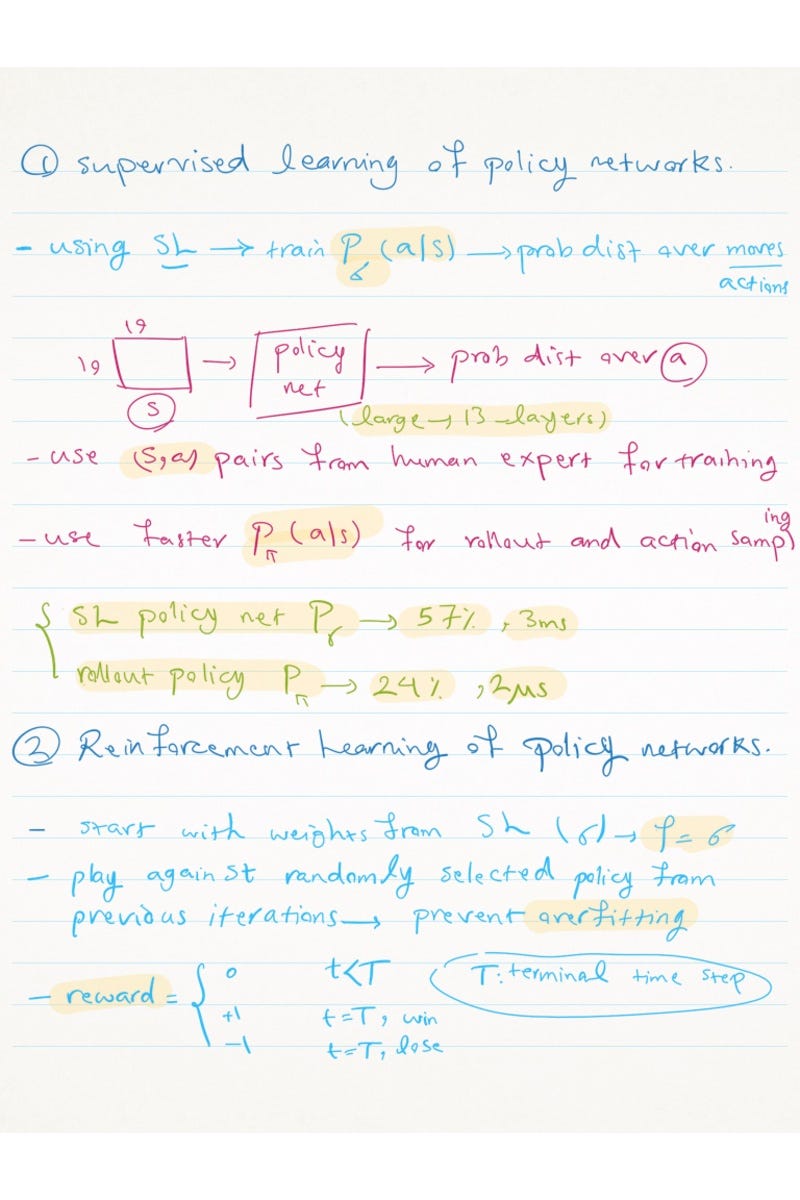 ① supervised learning of policy networks.
- using SL → train P_σ (a|s) → prob dist over moves
actions
19
19 → policy net → prob dist over a
s
(large → 13-layers)
- use (s,a) pairs from human expert for training
- use faster P_π (a|s) for rollout and action sampling
{ SL policy net P_σ → 57%, 3ms
rollout policy P_π → 24%, 2μs
② Reinforcement Learning of policy networks.
- start with weights from SL (σ) → ρ = σ
- play against randomly selected policy from
previous iterations → prevent overfitting
- reward = { 0 t<T T: terminal time step
+1 t=T, win
-1 t=T, lose